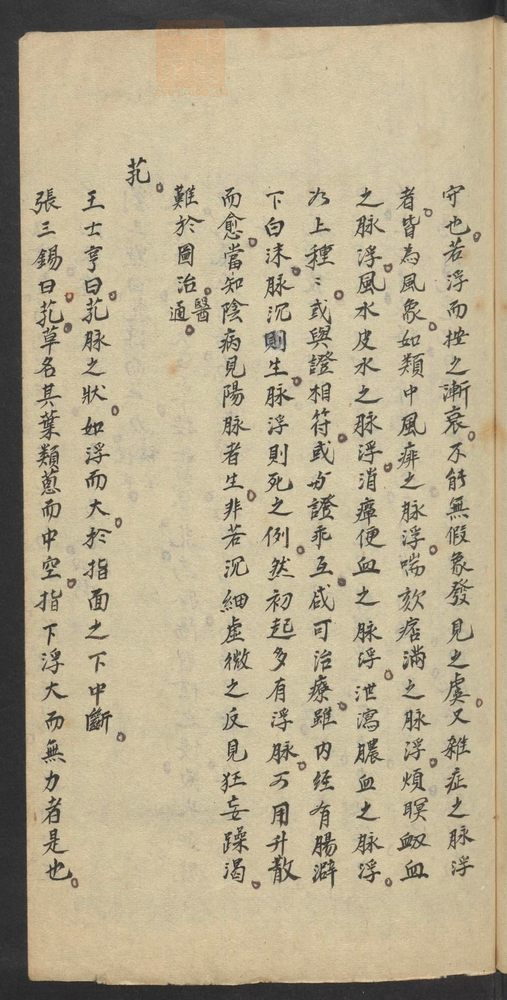 守也若浮而按之漸衰不能無假象發見之虞又雜症之脉浮
者皆為風象如類中風痱之脉浮喘欬痞滿之脉浮煩瞑衂血
之脉浮風水皮水之脉浮消癉便血之脉浮泄瀉膿血之脉浮
以上種〻或與證相符或与證乖互咸可治療雖内經有腸澼
下白沫脉沉則生脉浮則死之例然初起多有浮脉可用升散
而愈當知陰病見陽脉者生非若沉細虛微之反見狂妄躁渴
難於圖治醫
通
芤
王士亨曰芤脉之狀如浮而大於指面之下中斷
張三錫曰芤草名其葉類蔥而中空指下浮大而無力者是也